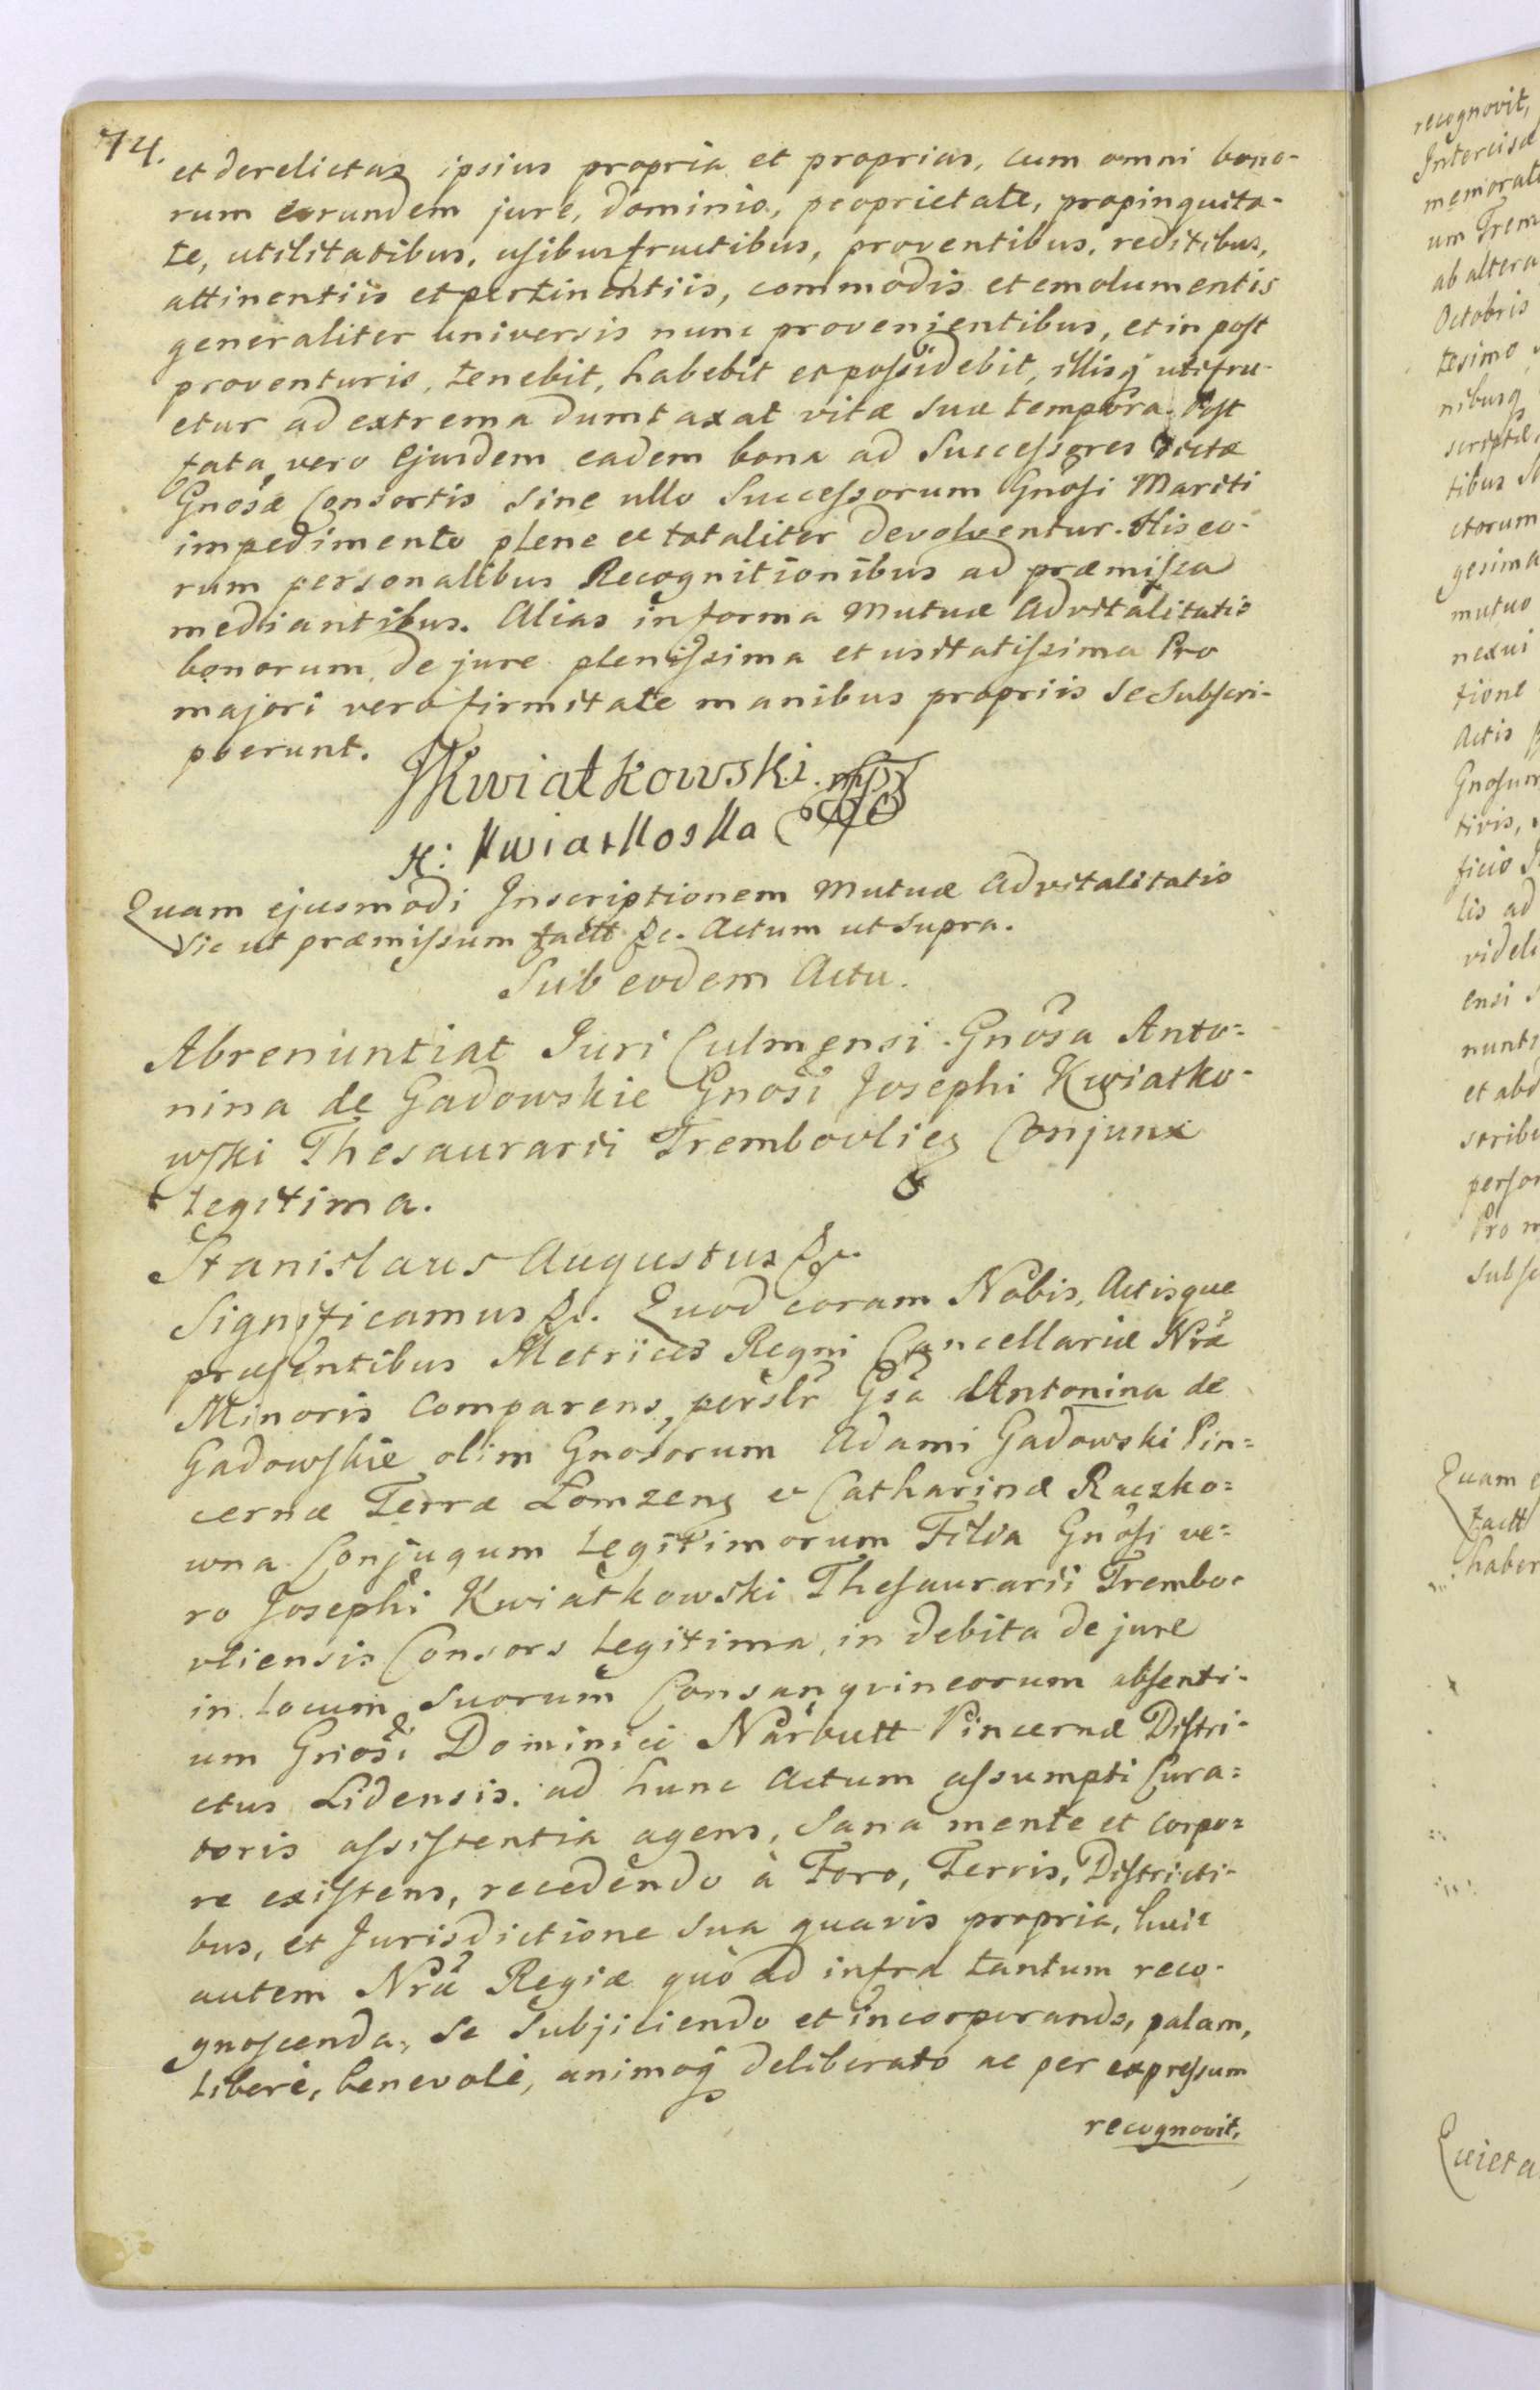 74.
et derelictas ipsius propria et proprias, cum omni bono-
rum eorundem jure, dominio, proprietate, propinquita-
te, utilitatibus, usibusfructibus, proventibus, reditibus,
attinentiis et pertinentiis, commodis et emolumentis
generaliter universis nunc provenientibus, et in post
proventuris, tenebit, habebit et possidebit, illisq utifru-
etur ad extrema dumtaxat vitæ suæ tempora. Post
fata vero Ejusdem eadem bona ad Successores dictæ
Gnosæ Consortis sine ullo Successorum Gnosi Mariti
impedimento plene et totaliter devolventur. His eo-
rum personalibus Recognitionibus ad præmissa
mediantibus. Alias in forma Mutuæ Advitalitatis
bonorum de jure plenissima et usitatissima Pro
majori vero firmitate manibus propriis se subscri-
pserunt.
JKwiatkowski mp
K: Kwiatkoska
Quam ejusmodi Inscriptionem Mutuæ Advitalitatis
sic ut præmissum factt &c. Actum ut supra.
Sub eodem Actu.
Abrenuntiat Juri Culmensi Gnosa Anto=
nina de Gadowskie Gnosi Josephi Kwiatko-
wski Thesaurarii Tremboulieg Conjunx
Legitima.
Stanislaus Augustus &c.
Significamus &c. Quod coram Nobis, Actisque
præsentibus Metrices Regni Cancellariæ Nræ
Minoris Comparens perslr Gsa Antonina de
Gadowskie olim Gnosorum Adami Gadowski Pin=
cernæ Terræ Lomzeng et Catharinæ Raczko=
wna Conjugum Legitimorum Filia Gnosi ve=
ro Josephi Kwiatkowski Thesaurarii Trembo-
vliensis Consors Legitima, in debita de jure
in locum suorum Consangvineorum absenti-
um Gnosi Dominici Narbutt Pincernæ Distri-
ctus Lidensis ad hunc Actum assumpti Cura=
toris assistentia agens, sana mente et corpo=
re existens, recedendo à Foro, Terris, Districti-
bus, et Jurisdictione sua quavis propria, huic
autem Nræ Regiæ quò ad infra tantum reco-
gnoscenda, se subjiciendo et incorporando, palam,
Liberè, benevolè, animoq deliberato ac per expressum
recognovit,
recognovit,
memorat
um Trem
ab altera
Octobris
tesimo
nibusq
scriptæ,
ctorum
gesima
mutuo
nexui
tione
Actis
Gnosum
tivis,
ficio
lis ad
videli
ensi
nunti
et abd
scribe
person
Pro m
subsc
Quam e
factt
haber
Quieta